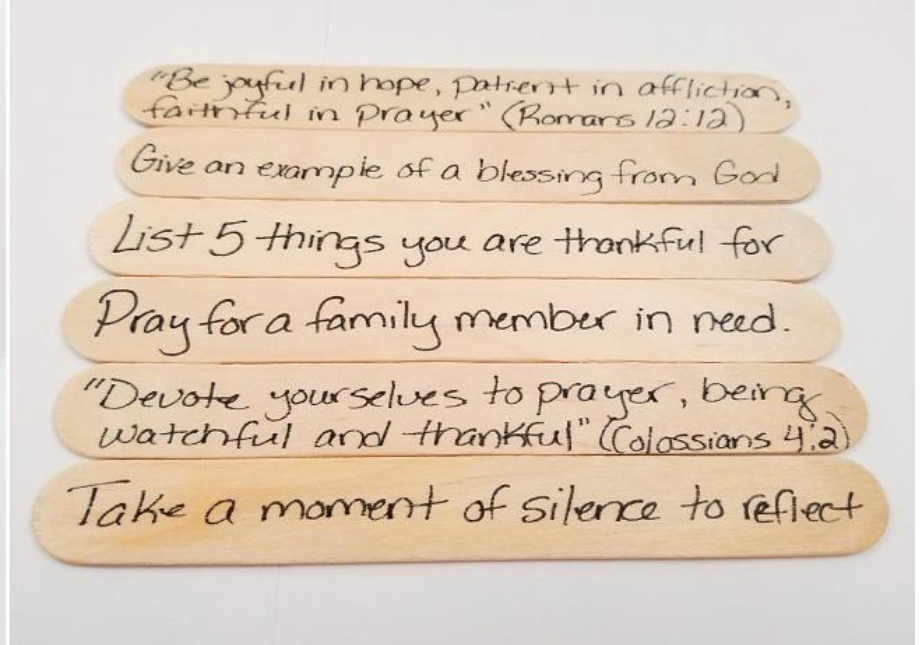 "Be joyful in hope, patient in affliction,
faithful in prayer" (Romans 12:12)
Give an example of a blessing from God
List 5 things you are thankful for
Pray for a family member in need.
"Devote yourselves to prayer, being
watchful and thankful" (Colossians 4:2)
Take a moment of silence to reflect